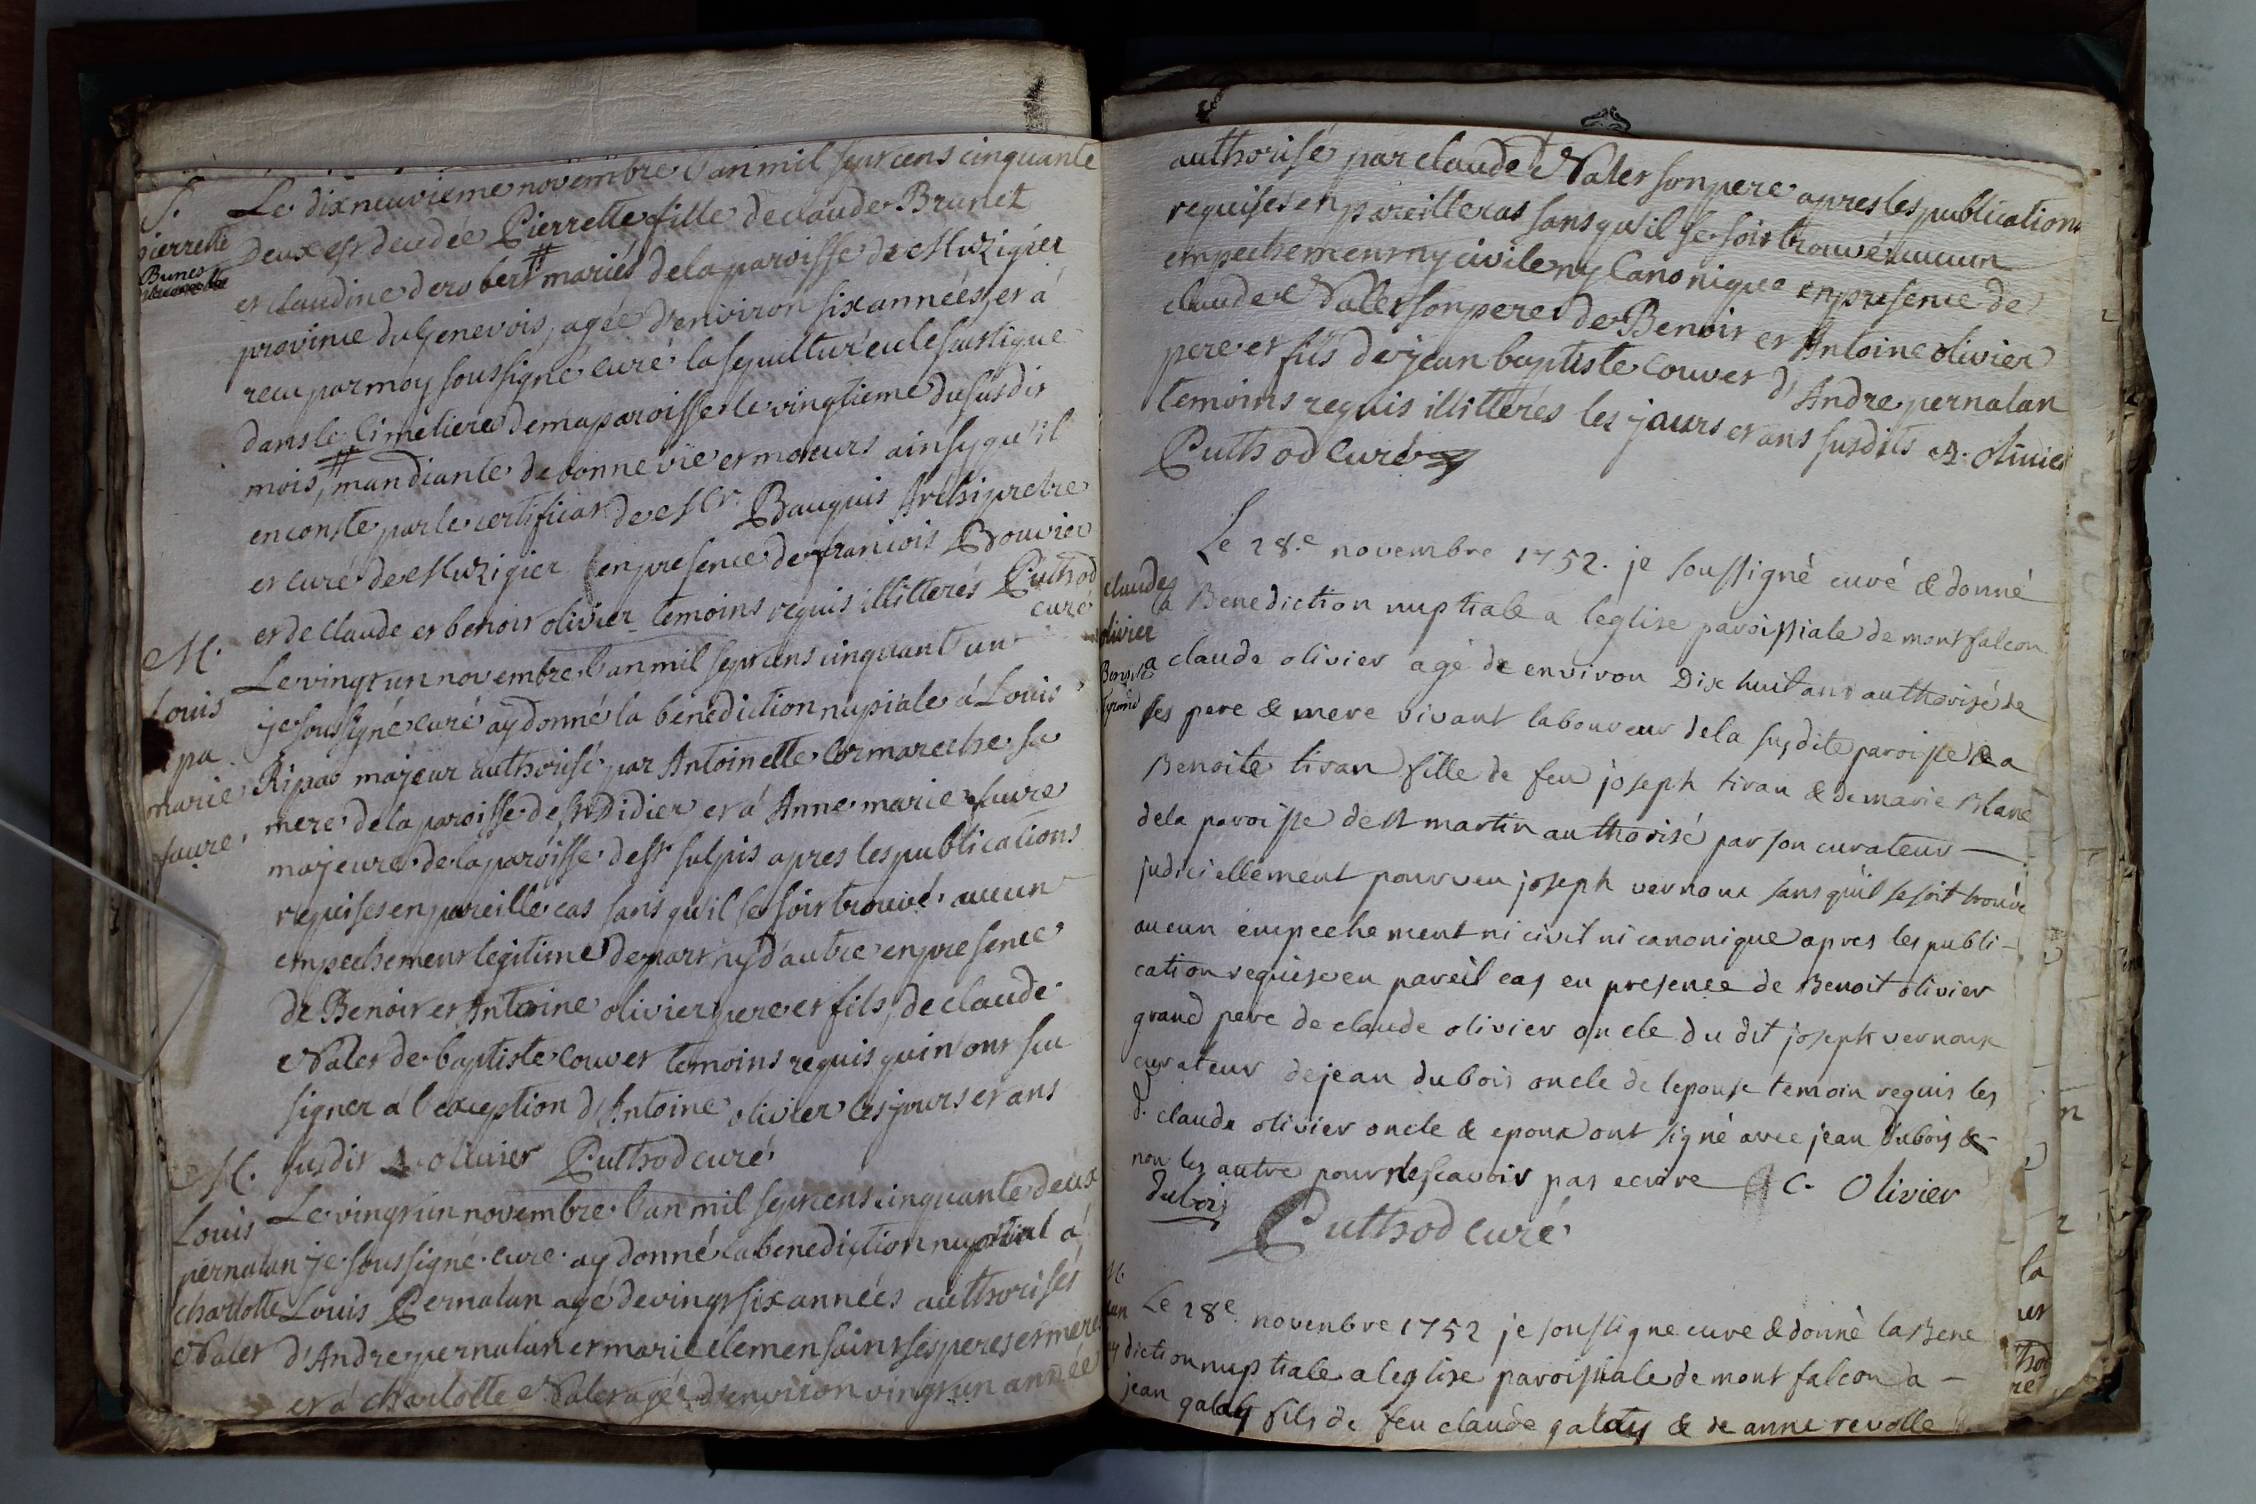 S.
pierrette
Brunet
Le dixneuvieme novembre l'an mil sept cens cinquante
deux est decedée Pierrette fille de claude Brunet
et claudine derobert # mariés de la paroisse de Muzigier
province du Genevois, agée d'environ six années, et á
recu par moy soussigné curé la sepulture eclesiastique
dans le Cimetiere de ma paroisse le vingtieme du susdit
mois, # mandiante de bonne vie et moeurs ainsy qu'il
en conste par le certificat de Mr. Bauquis Archipretre
et curé de Muzigier en presence de francois Bouvier
et de claude et benoit olivier temoins requis illitterés Puthod
curé
M.
Louis
pa
marie
faure
Le vingt un novembre l'an mil sept cens cinquant un
je soussigné curé ay donné la benédiction nupiale á Louis
Ripas majeur authorisé par Antoinette Cormareche sa
mere de la paroisse de St Didier et á Anne marie faure
majeure de la paroisse de St sulpis apres les publications
requises en pareille cas sans qu'il se soit trouvé aucun
empechement legitime de part ny d'autre en presence
de Benoit et Antoine olivier pere et fils, de claude
Nalet de baptiste Couvet temoins requis qui n'ont scu
signer á l'exception d'Antoine olivier les jours et ans
susdit A olivier Puthod curé
M.
Louis
pernatan
charlotte
Nalet
Le vingt un novembre l'an mil sept cens cinquante deux
je soussigné curé ay donné la benediction nuptial á
Louis Pernatan agé de vingt six années authorisés
d'Andre pernatan et marie clemensaint ses peres et meres
et á charlotte Nalet agée d'environ vingt un année
authorisé par claude Nalet son pere apres les publications
requises en pareille cas sans qu'il se soit trouvé aucun
empechement ny civile ny Canonique en presence de
claude Nallet son pere de Benoit et Antoine olivier
pere et fils de jean baptiste Couvet d'Andre pernatan
temoins requis illitterés les jours et ans susdits A. olivier
Puthod Curé
claude
olivier
Le 28.e novembre 1752. je soussigné curé & donné
la Benediction nuptiale a leglise paroissiale de montfalcon
a claude olivier agé de environ Dix huit ans authorisé de
ses pere & mere vivant laboureur dela susdite paroisse & a
Benoite tiran fille de feu joseph tiran & de marie Blanc
dela paroisse de st martin authorisé par son curateur
judiciellement pourveu joseph vernoux sans quil se soit trouvé
aucun empechement ni civil ni canonique apres les publi-
cation requise en pareil cas en presence de Benoit olivier
grand pere de claude olivier oncle du dit joseph vernoux
curateur de jean dubois oncle de lepouse temoin requis les
d. claude olivier oncle & epoux ont signé avec jean dubois &
non les autre pour ne scavoir pas ecrire C. Olivier
dubois
Puthod curé
Le 28e novenbre 1752 je soussigne cure & donné la Bene
diction nuptiale a leglise paroissiale de mont falcon a
jean galay fils de feu claude galay & de anne revolle